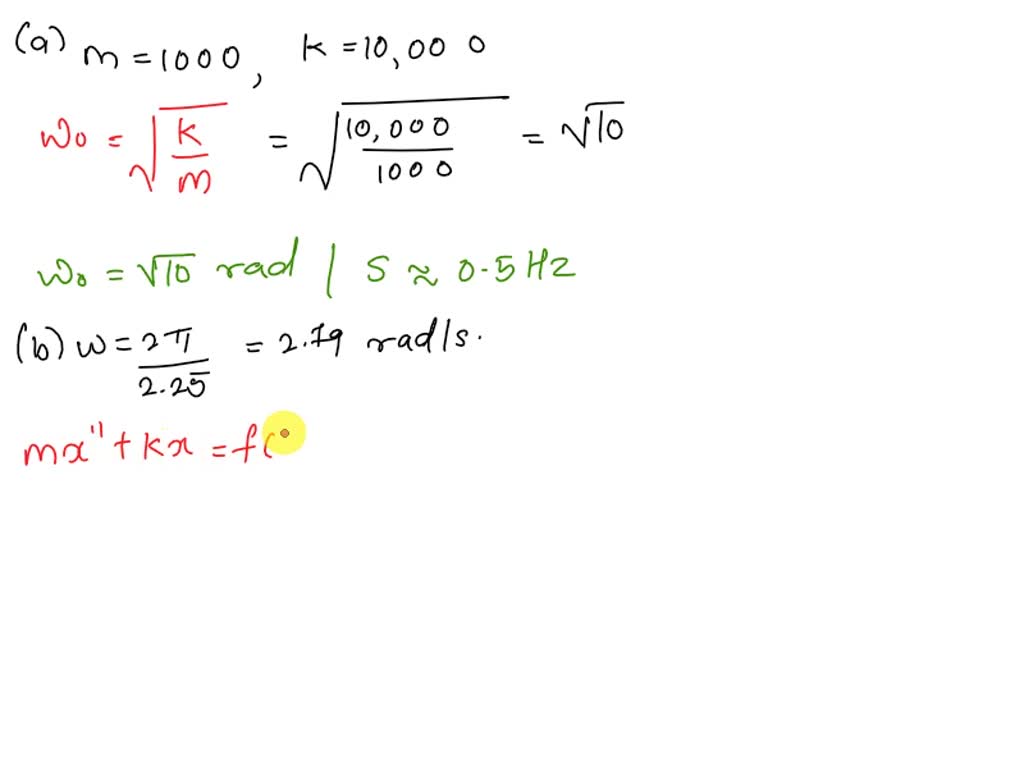 (a) m = 1000, k = 10,000
ω₀ = √(k/m) = √(10,000/1000) = √10
ω₀ = √10 rad / s ≈ 0.5 Hz
(b) ω = 2π/2.25 = 2.79 rad/s.
mx'' + kx = f(